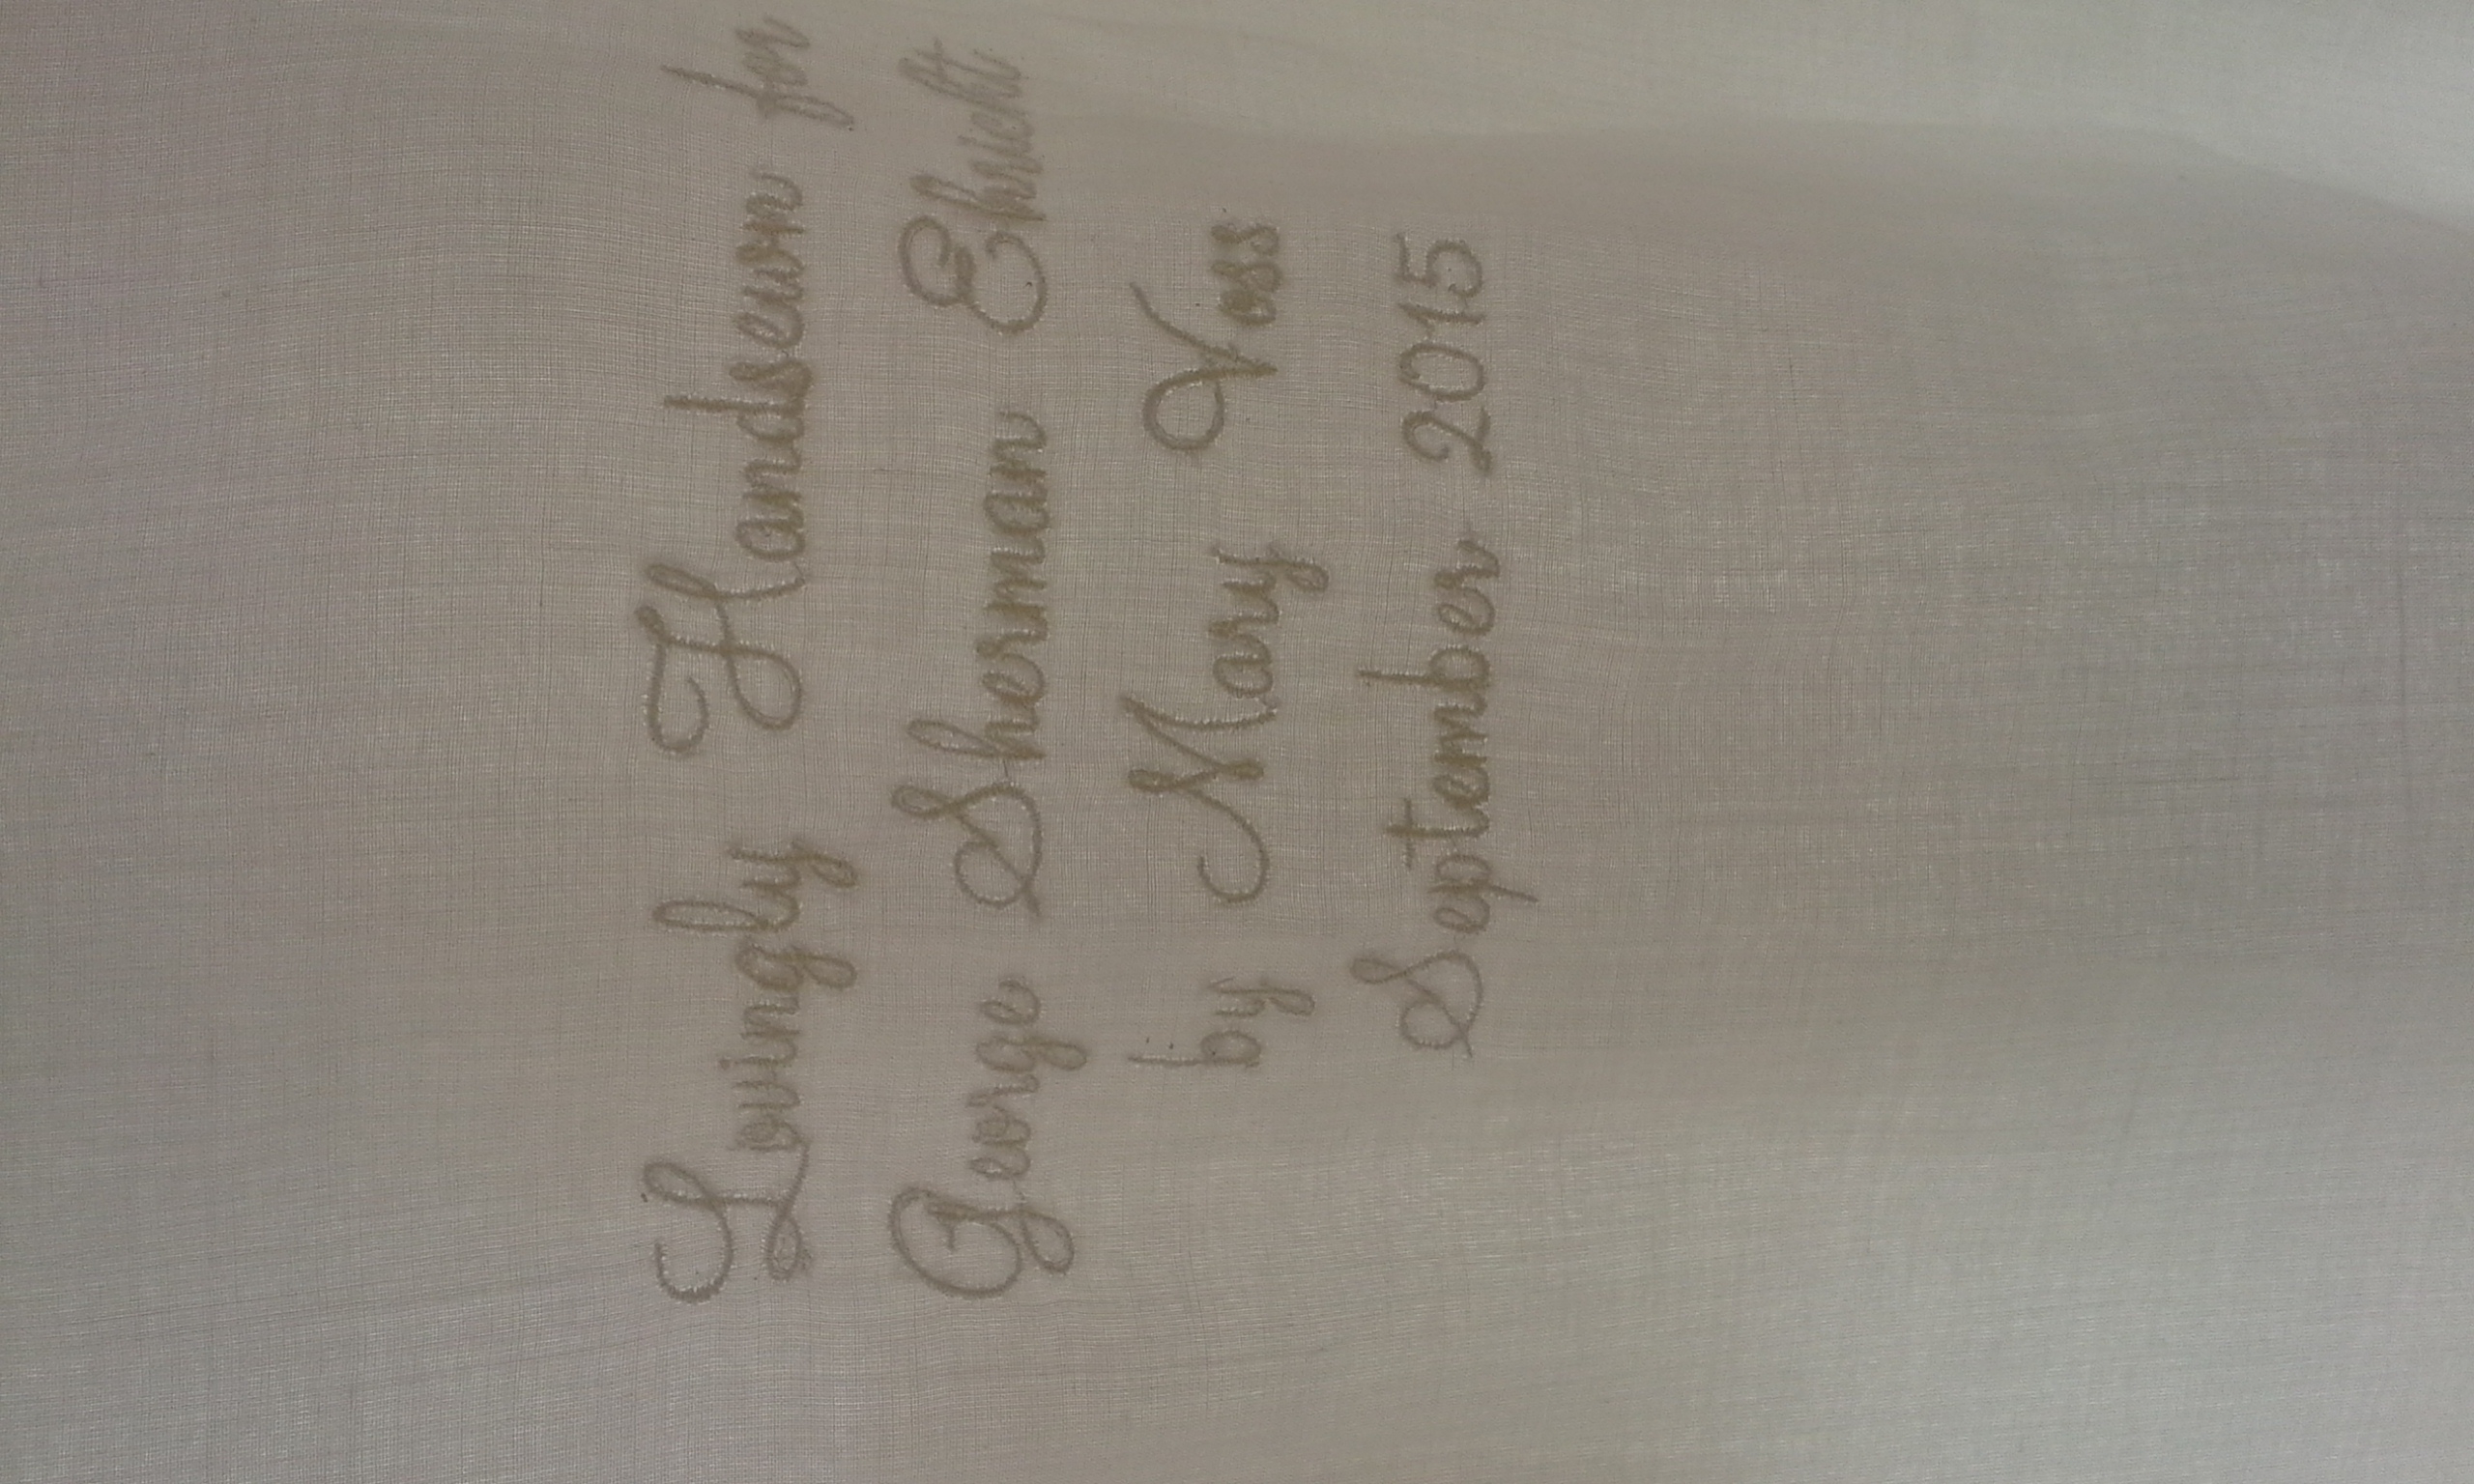 Lovingly Handsewn for
George Sherman Ehricht
by Mary Voss
September 2015